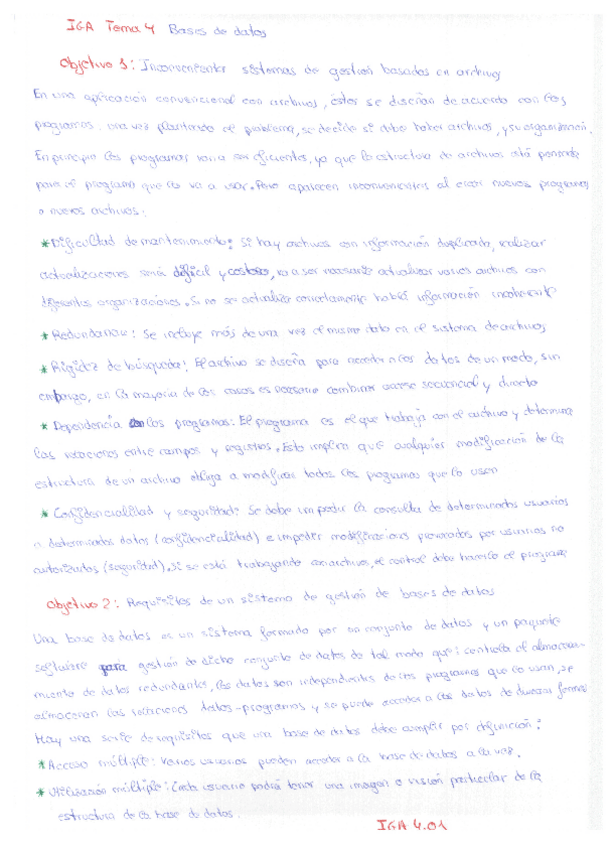 IGA Tema 4 Bases de datos
Objetivo 1: Inconvenientes sistemas de gestión basados en archivos
En una aplicación convencional con archivos, éstos se diseñan de acuerdo con los
programas. Una vez planteado el problema, se decide si debe haber archivos, y su organización.
En principio los programas van a ser eficientes, ya que la estructura de archivos está pensada
para el programa que lo va a usar. Pero aparecen inconvenientes al crear nuevos programas
o nuevos archivos:
* Dificultad de mantenimiento: Si hay archivos con información duplicada, realizar
actualizaciones será difícil y costoso, va a ser necesario actualizar varios archivos con
diferentes organizaciones. Si no se actualiza correctamente habrá información incoherente
* Redundancia: Se incluye más de una vez el mismo dato en el sistema de archivos
* Rigidez de búsqueda: El archivo se diseña para acceder a los datos de un modo, sin
embargo, en la mayoría de los casos es necesario combinar acceso secuencial y directo
* Dependencia los programas: El programa es el que trabaja con el archivo y determina
las relaciones entre campos y registros. Esto implica que cualquier modificación de la
estructura de un archivo obliga a modificar todos los programas que lo usen
* Confidencialidad y seguridad: Se debe impedir la consulta de determinados usuarios
a determinados datos (confidencialidad) e impedir modificaciones provocadas por usuarios no
autorizados (seguridad). Si se está trabajando con archivos, el control debe hacerlo el programa
Objetivo 2: Requisitos de un sistema de gestión de bases de datos
Una base de datos es un sistema formado por un conjunto de datos y un paquete
software para gestión de dicho conjunto de datos de tal modo que: controla el almacena-
miento de datos redundantes, los datos son independientes de los programas que lo usan, se
almacenan las relaciones datos-programas y se puede acceder a los datos de diversas formas
Hay una serie de requisitos que una base de datos debe cumplir por definición:
* Acceso múltiple: Varios usuarios pueden acceder a la base de datos a la vez.
* Utilización múltiple: Cada usuario podrá tener una imagen o visión particular de la
estructura de la base de datos.
IGA 4.01